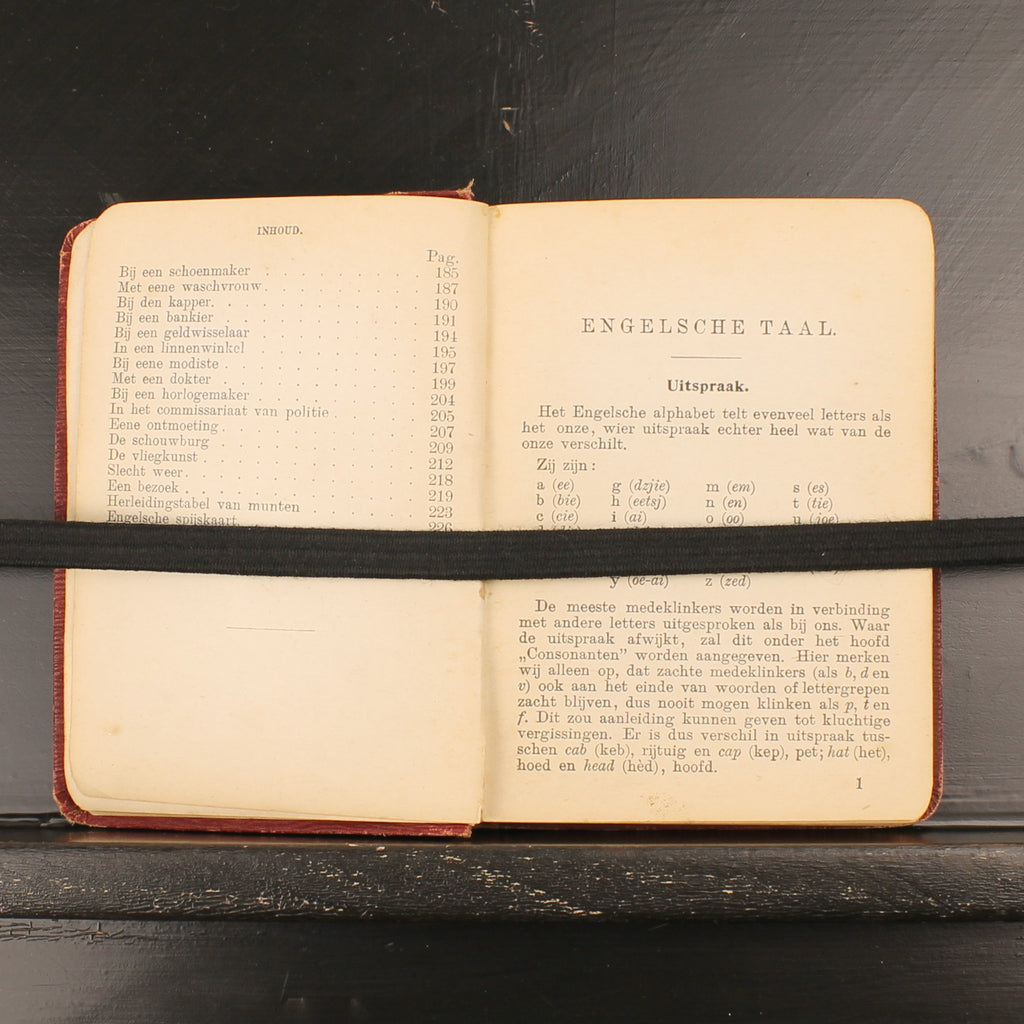 INHOUD.
Pag.
Bij een schoenmaker . . . . . . . . . 185
Met eene waschvrouw . . . . . . . . . 187
Bij den kapper. . . . . . . . . . . 190
Bij een bankier . . . . . . . . . . 191
Bij een geldwisselaar . . . . . . . . . 194
In een linnenwinkel . . . . . . . . . 195
Bij eene modiste . . . . . . . . . . 197
Met een dokter . . . . . . . . . . 199
Bij een horlogemaker . . . . . . . . . 204
In het commissariaat van politie . . . . . . 205
Eene ontmoeting . . . . . . . . . . 207
De schouwburg . . . . . . . . . . 209
De vliegkunst . . . . . . . . . . . 212
Slecht weer. . . . . . . . . . . . 218
Een bezoek . . . . . . . . . . . 219
Herleidingstabel van munten . . . . . . . 223
Engelsche spijskaart. 226
ENGELSCHE TAAL.
Uitspraak.
Het Engelsche alphabet telt evenveel letters als
het onze, wier uitspraak echter heel wat van de
onze verschilt.
Zij zijn:
a (ee) g (dzjie) m (em) s (es)
b (bie) h (eetsj) n (en) t (tie)
c (cie) i (ai) o (oo) u (joe)
y (oe-ai) z (zed)
De meeste medeklinkers worden in verbinding
met andere letters uitgesproken als bij ons. Waar
de uitspraak afwijkt, zal dit onder het hoofd
„Consonanten” worden aangegeven. Hier merken
wij alleen op, dat zachte medeklinkers (als b, d en
v) ook aan het einde van woorden of lettergrepen
zacht blijven, dus nooit mogen klinken als p, t en
f. Dit zou aanleiding kunnen geven tot kluchtige
vergissingen. Er is dus verschil in uitspraak tus-
schen cab (keb), rijtuig en cap (kep), pet; hat (het),
hoed en head (hèd), hoofd.
1